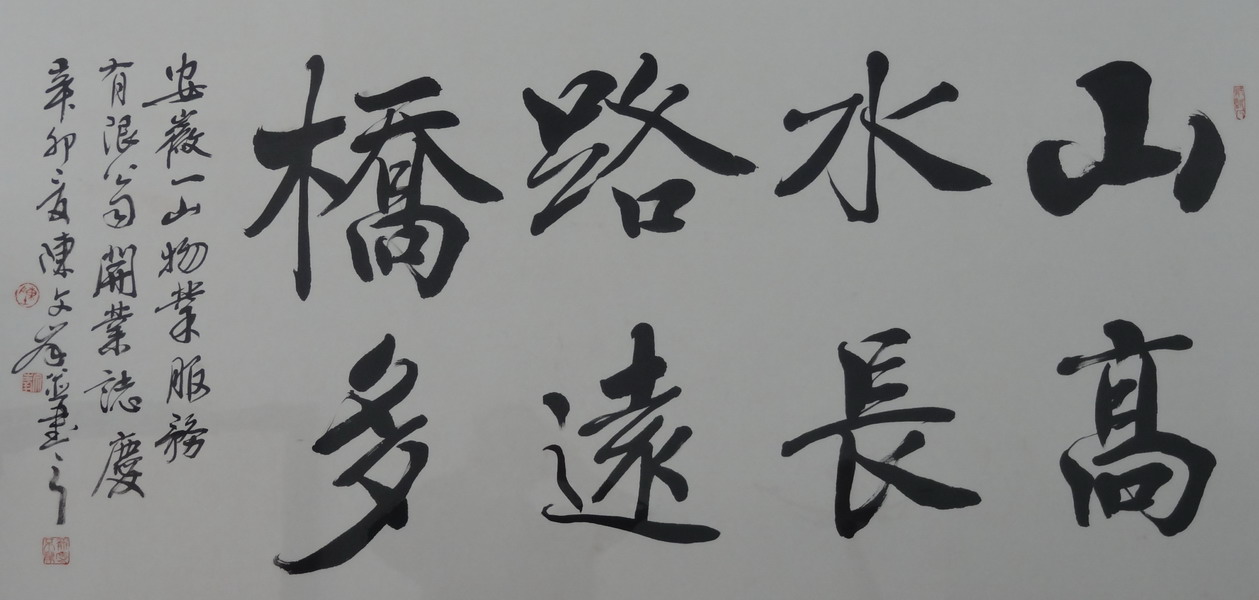 山高
水長
路遠
橋多
安徽一山物業服務
有限公司開業誌慶
辛卯之夏陳文